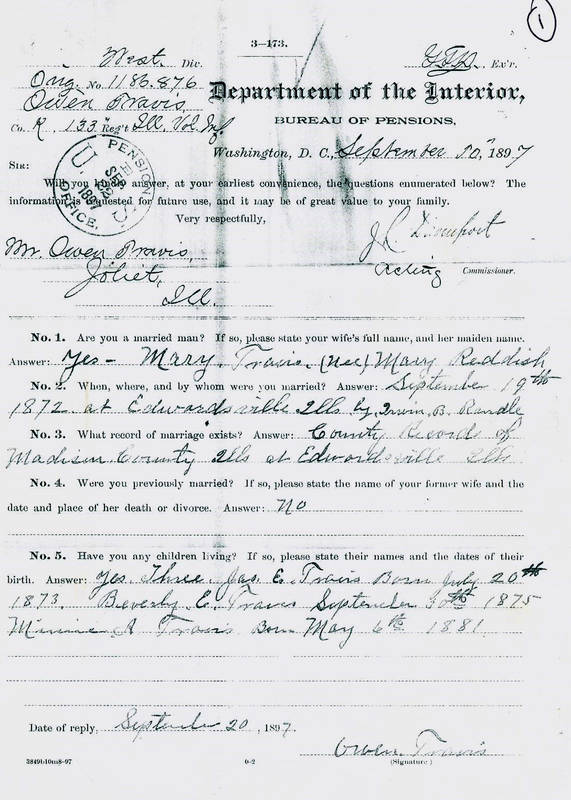 1
3—173.
West. Div.
Orig. No. 1186.876
Owen Travis,
Co. K, 133" Reg't Ill. Vol. Inf
Ex'r.
Department of the Interior,
BUREAU OF PENSIONS,
Washington, D. C., September 10, 1897
SIR:
U. S. PENSION OFFICE. SEP 22 1897
Will you kindly answer, at your earliest convenience, the questions enumerated below? The
information is requested for future use, and it may be of great value to your family.
Very respectfully,
Acting Commissioner.
Mr. Owen Travis,
Joliet,
Ill.
No. 1. Are you a married man? If so, please state your wife's full name, and her maiden name.
Answer: Yes - Mary Travis (Nee) Mary Reddish
No. 2. When, where, and by whom were you married? Answer: September 19th
1872 at Edwardsville Ills by, Irwin, B. Randle
No. 3. What record of marriage exists? Answer: County Records of
Madison County Ills at Edwardsville Ills
No. 4. Were you previously married? If so, please state the name of your former wife and the
date and place of her death or divorce. Answer: No
No. 5. Have you any children living? If so, please state their names and the dates of their
birth. Answer: Yes. Three. Jas. E. Travis Born July 20th
1873. Beverly E. Travis September 30th 1875
Minnie A Travis Born May 6th 1881
Date of reply, September 20, 1897.
Owen Travis
(Signature)
38491b10m8-97
0-2